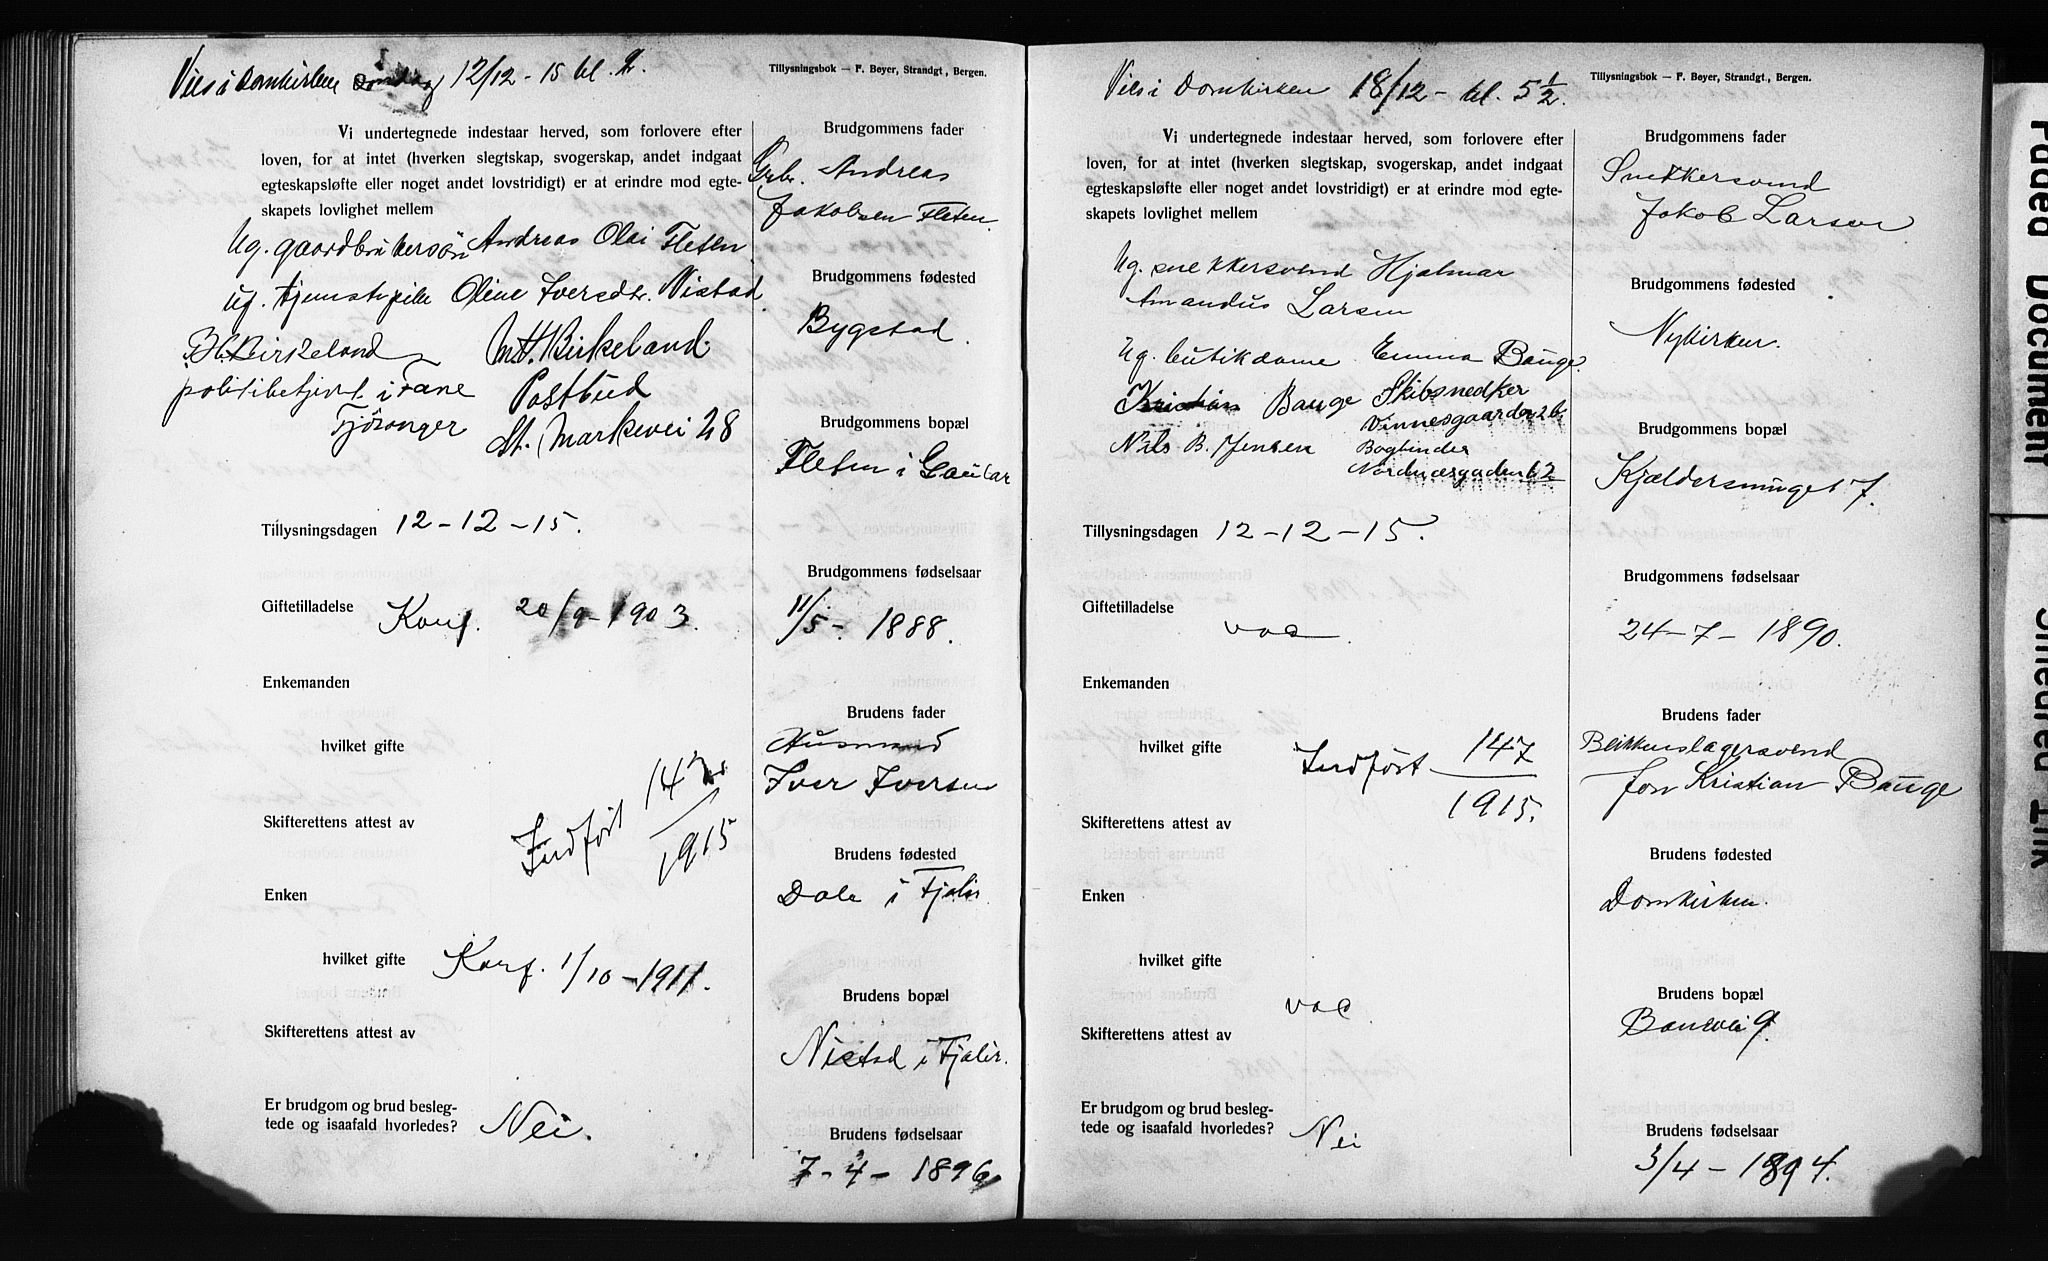 Vies i Domkirken Søndag 12/12 - 15 kl. 2.
Tillysningsbok — F. Beyer, Strandgt., Bergen.
Vi undertegnede indestaar herved, som forlovere efter
loven, for at intet (hverken slegtskap, svogerskap, andet indgaat
egteskapsløfte eller noget andet lovstridigt) er at erindre mod egte-
skapets lovlighet mellem
Ug. gaardbrukersøn Andreas Olai Fleten
ug. tjenestepike Oline Iversdtr. Nistad
Birkeland
politibetjent i Fane
Fjøsanger
M.H. Birkeland
Postbud
St. Markevei 28
Tillysningsdagen 12-12-15.
Giftetilladelse Konf. 20/9-1903.
Enkemanden
hvilket gifte
Indført 147/1915
Skifterettens attest av
Enken
hvilket gifte Konf. 1/10-1911.
Skifterettens attest av
Er brudgom og brud besleg-
tede og isaafald hvorledes? Nei.
Brudgommens fader
Grbr. Andreas
Jakobsen Fleten.
Brudgommens fødested
Bygstad.
Brudgommens bopæl
Fleten i Gaular
Brudgommens fødselsaar
11/5-1888.
Brudens fader
Husmand
Iver Iversen
Brudens fødested
Dale i Fjaler
Brudens bopæl
Nistad i Fjaler.
Brudens fødselsaar
7-4-1896
Vies i Domkirken 18/12 - kl. 5 1/2.
Tillysningsbok — F. Beyer, Strandgt., Bergen.
Vi undertegnede indestaar herved, som forlovere efter
loven, for at intet (hverken slegtskap, svogerskap, andet indgaat
egteskapsløfte eller noget andet lovstridigt) er at erindre mod egte-
skapets lovlighet mellem
Ug. snekkersvend Hjalmar
Amandus Larsen
Ug. butikdame Emma Bauge.
Kristian Bauge Skibsnedker
Vinnesgaarden 2b
Nils B. Jensen Bogbinder
Nordnæsgaden 62
Tillysningsdagen 12-12-15.
Giftetilladelse vac.
Enkemanden
hvilket gifte Indført 147
1915.
Skifterettens attest av
Enken
hvilket gifte
vac.
Skifterettens attest av
Er brudgom og brud besleg-
tede og isaafald hvorledes? Nei
Brudgommens fader
Snekkersvend
Jakob Larsen
Brudgommens fødested
Nykirken.
Brudgommens bopæl
Kjældersmuget 7.
Brudgommens fødselsaar
24-7-1890.
Brudens fader
Blikkenslagersvend
Jon Kristian Bauge
Brudens fødested
Domkirken.
Brudens bopæl
Baneveien 9.
Brudens fødselsaar
3/4-1894.
Faded Document
Smeared Ink